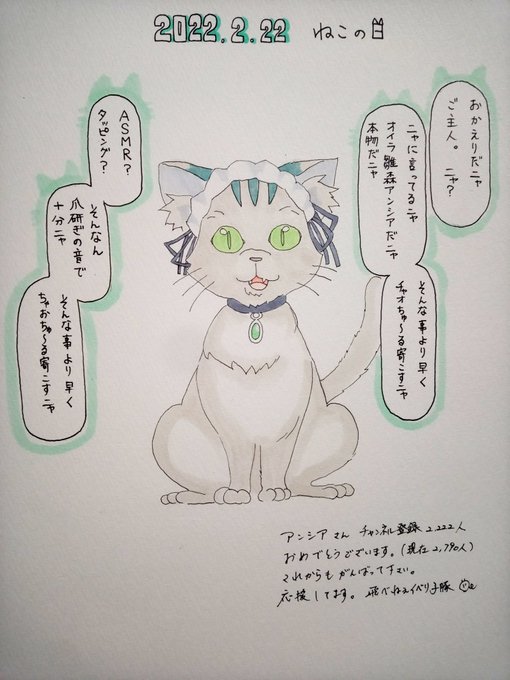 2022.2.22 ねこの日
おかえりだニャ
ご主人。 ニャ?
ニャに言ってるニャ
オイラ雛森アンシアだニャ
本物だニャ
そんな事より早く
チャオちゅ〜る寄こすニャ
ASMR?
タッピング?
そんなん
爪研ぎの音で
十分ニャ
そんな事より早く
ちゃおちゅ〜る寄こすニャ
アンシアさん チャンネル登録2,222人
おめでとうございます。(現在2,790人)
これからもがんばって下さい。
応援してます。 飛べねぇイベリ子豚